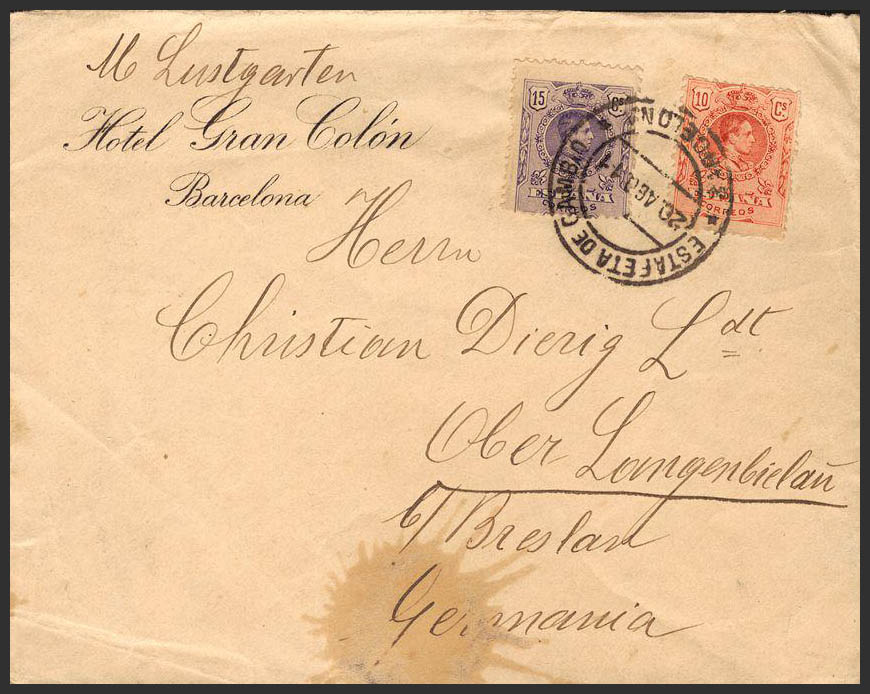 M Lustgarten
Hotel Gran Colón
Barcelona
15 Cs
ESPAÑA
CORREOS
10 Cs
CORREOS
ESTAFETA DE CAMBIO
20.AGO
Herrn
Christian Dierig Ldt
Ober Langenbielau
b/ Breslau
Germania